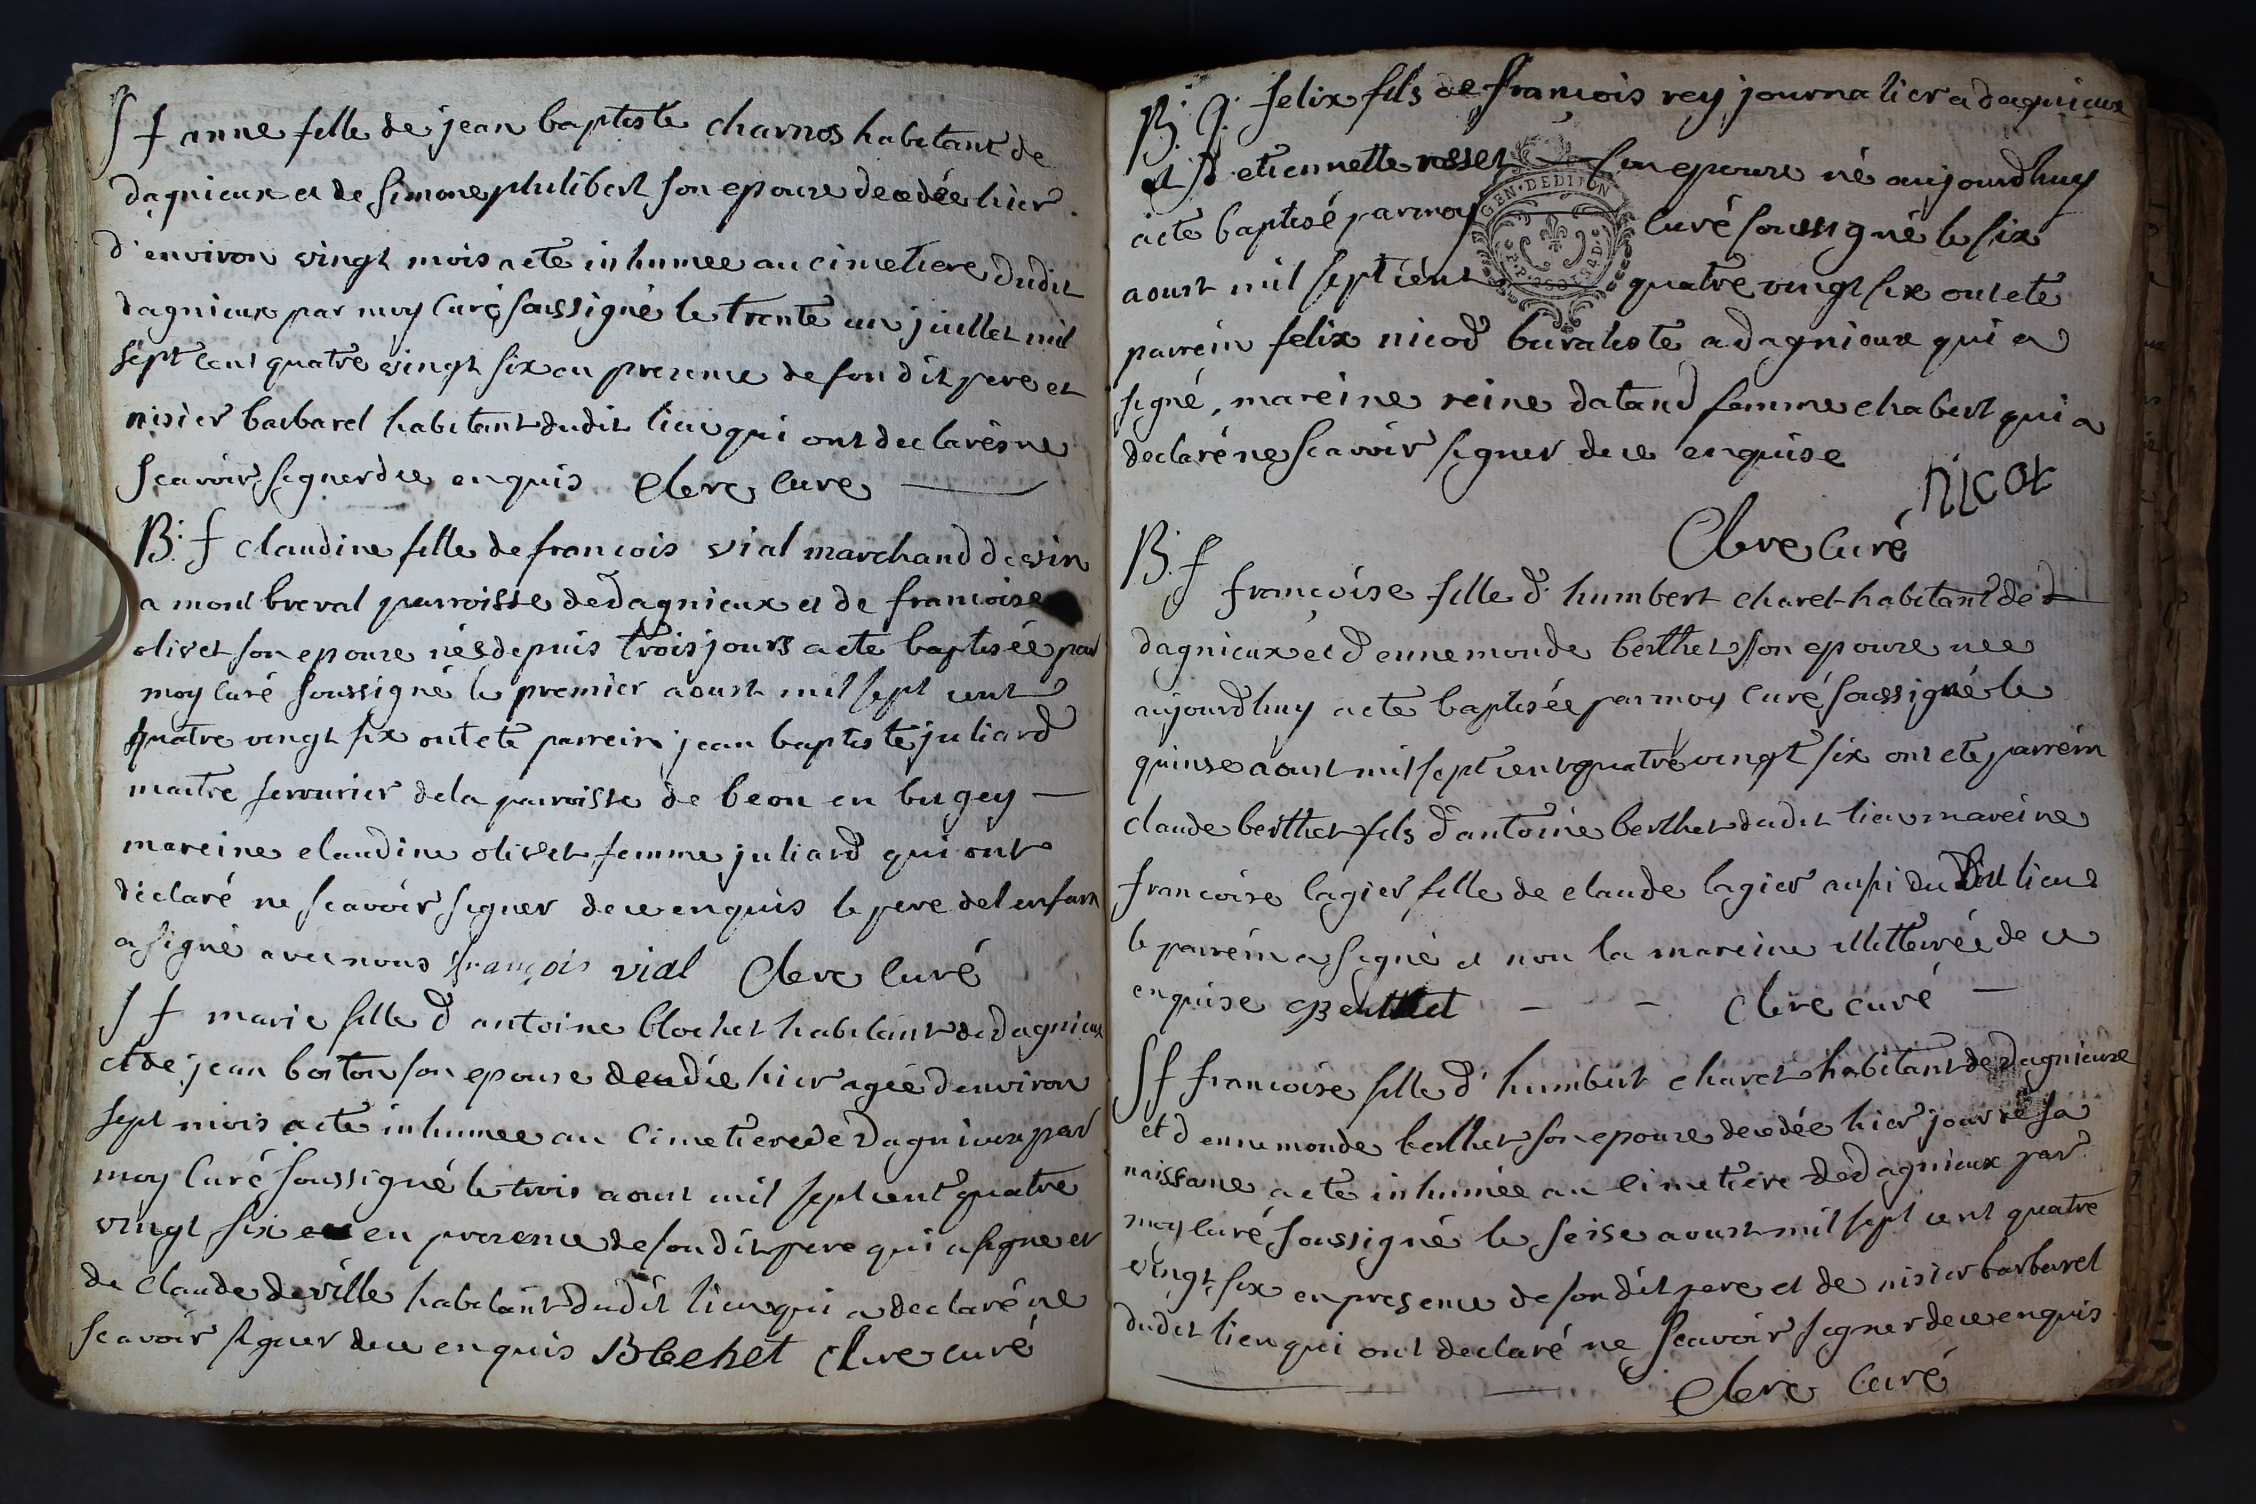 S f anne fille de jean baptiste charnos habitant de
dagnieux et de simone philibert son epouze decedée hier
d'environ vingt mois a eté inhumee au cimetiere dudit
dagnieux par moy curé soussigné le trente un juillet mil
sept cent quatre vingt six en prezence de son dit pere et
nisier barbarel habitant dudit lieu qui ont declarés ne
scavoir signer de ce enquis Clerc curé
B. f claudine fille de francois vial marchand de vin
a mont breval parroisse de dagnieux et de francoise
olivet son epouze née depuis trois jours a eté baptisée par
moy curé soussigné le premier aoust mil sept cent
quatre vingt six ont eté parrein jean baptiste juliard
maitre serrurier de la parroisse de beon en bugey
mareine claudine olivet femme juliard qui ont
déclaré ne scavoir signer de ce enquis le pere de lenfant
a signé avec nous françois vial Clerc curé
S f marie fille d antoine blochet habitant de dagnieux
et de jean boiton son epouse decedée hier agée denviron
sept mois a eté inhumee au cimetiere de dagnieux par
moy curé soussigné le trois aoust mil sept cent quatre
vingt six en prezence de son dit pere qui a signe et
de claude deville habitant dudit lieu qui a declaré ne
scavoir signer de ce enquis Blechet Clerc curé
B. G. felix fils de francois rey journalier a dagnieux
et d etiennette rosset son epouze né aujourdhuy
a eté baptisé par moy curé soussigné le six
aoust mil sept cent quatre vingt six ont eté
parrein felix nicod buraliste a dagnieux qui a
signé, mareine reine datand femme chabert qui a
declaré ne scavoir signer de ce enquise
nicot
Clerc curé
GEN. DE DIJON
B. f françoise fille d. humbert charet habitant de
dagnieux et d ennemonde berthet son epouze nee
aujourdhuy a eté baptisée par moy curé soussigné le
quinse aoust mil sept cent quatre vingt six ont eté parrein
claude berthet fils d antoine berthet dudit lieu mareine
francoise lagier fille de claude lagier aussi du dit lieu
le parrein a signé et non la mareine illitterée de ce
enquise Berthet - - - Clerc curé
S f francoise fille d' humbert charet habitant de dagnieux
et d ennemonde berthet son epouze decedée hier jour de sa
naissance a eté inhumée au cimetiere de dagnieux par
moy curé soussigné le seise aoust mil sept cent quatre
vingt six en presence de son dit pere et de nisier barbarel
dudit lieu qui ont declaré ne scavoir signer de ce enquis
Clerc curé